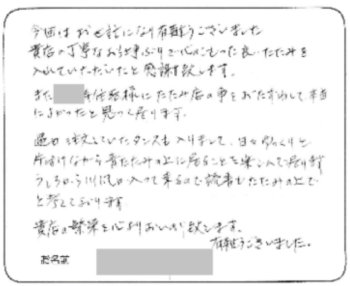 今回はお世話になり有難うございました
貴店の丁寧なお仕事ぶりで心のこもった良いたたみを
入れていただいたと感謝致します。
また 様にたたみ店の事をおたずねして本当
によかったと思って居ります。
過日注文していたタンスも入りまして、日々ゆっくりと
片付けながら青だたみの上に座ることを楽しんで居ります
うしろから川風の入って来るので読書もたたみの上で
と考えております
貴店の繁栄を心よりおいのり致します。
有難うございました。
お名前